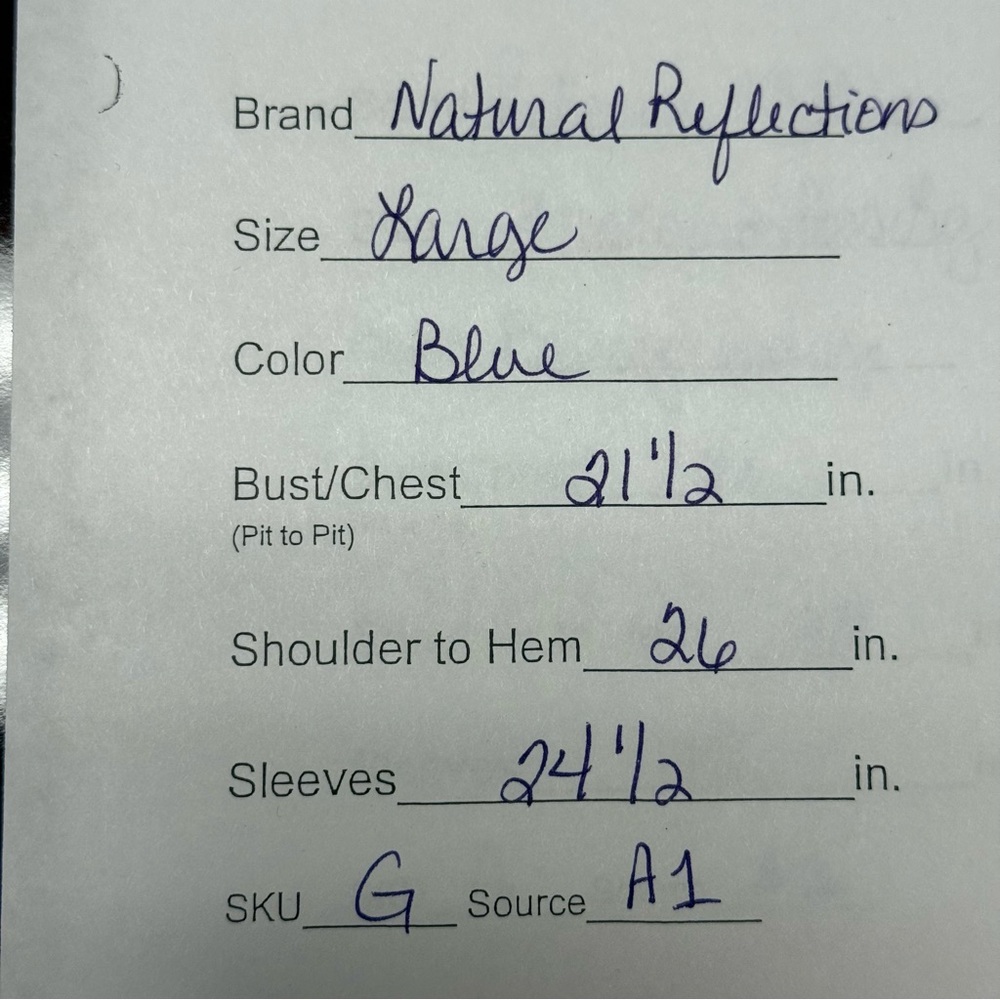 Brand Natural Reflections
Size Large
Color Blue
Bust/Chest 21 1/2 in.
(Pit to Pit)
Shoulder to Hem 26 in.
Sleeves 24 1/2 in.
SKU G Source A1